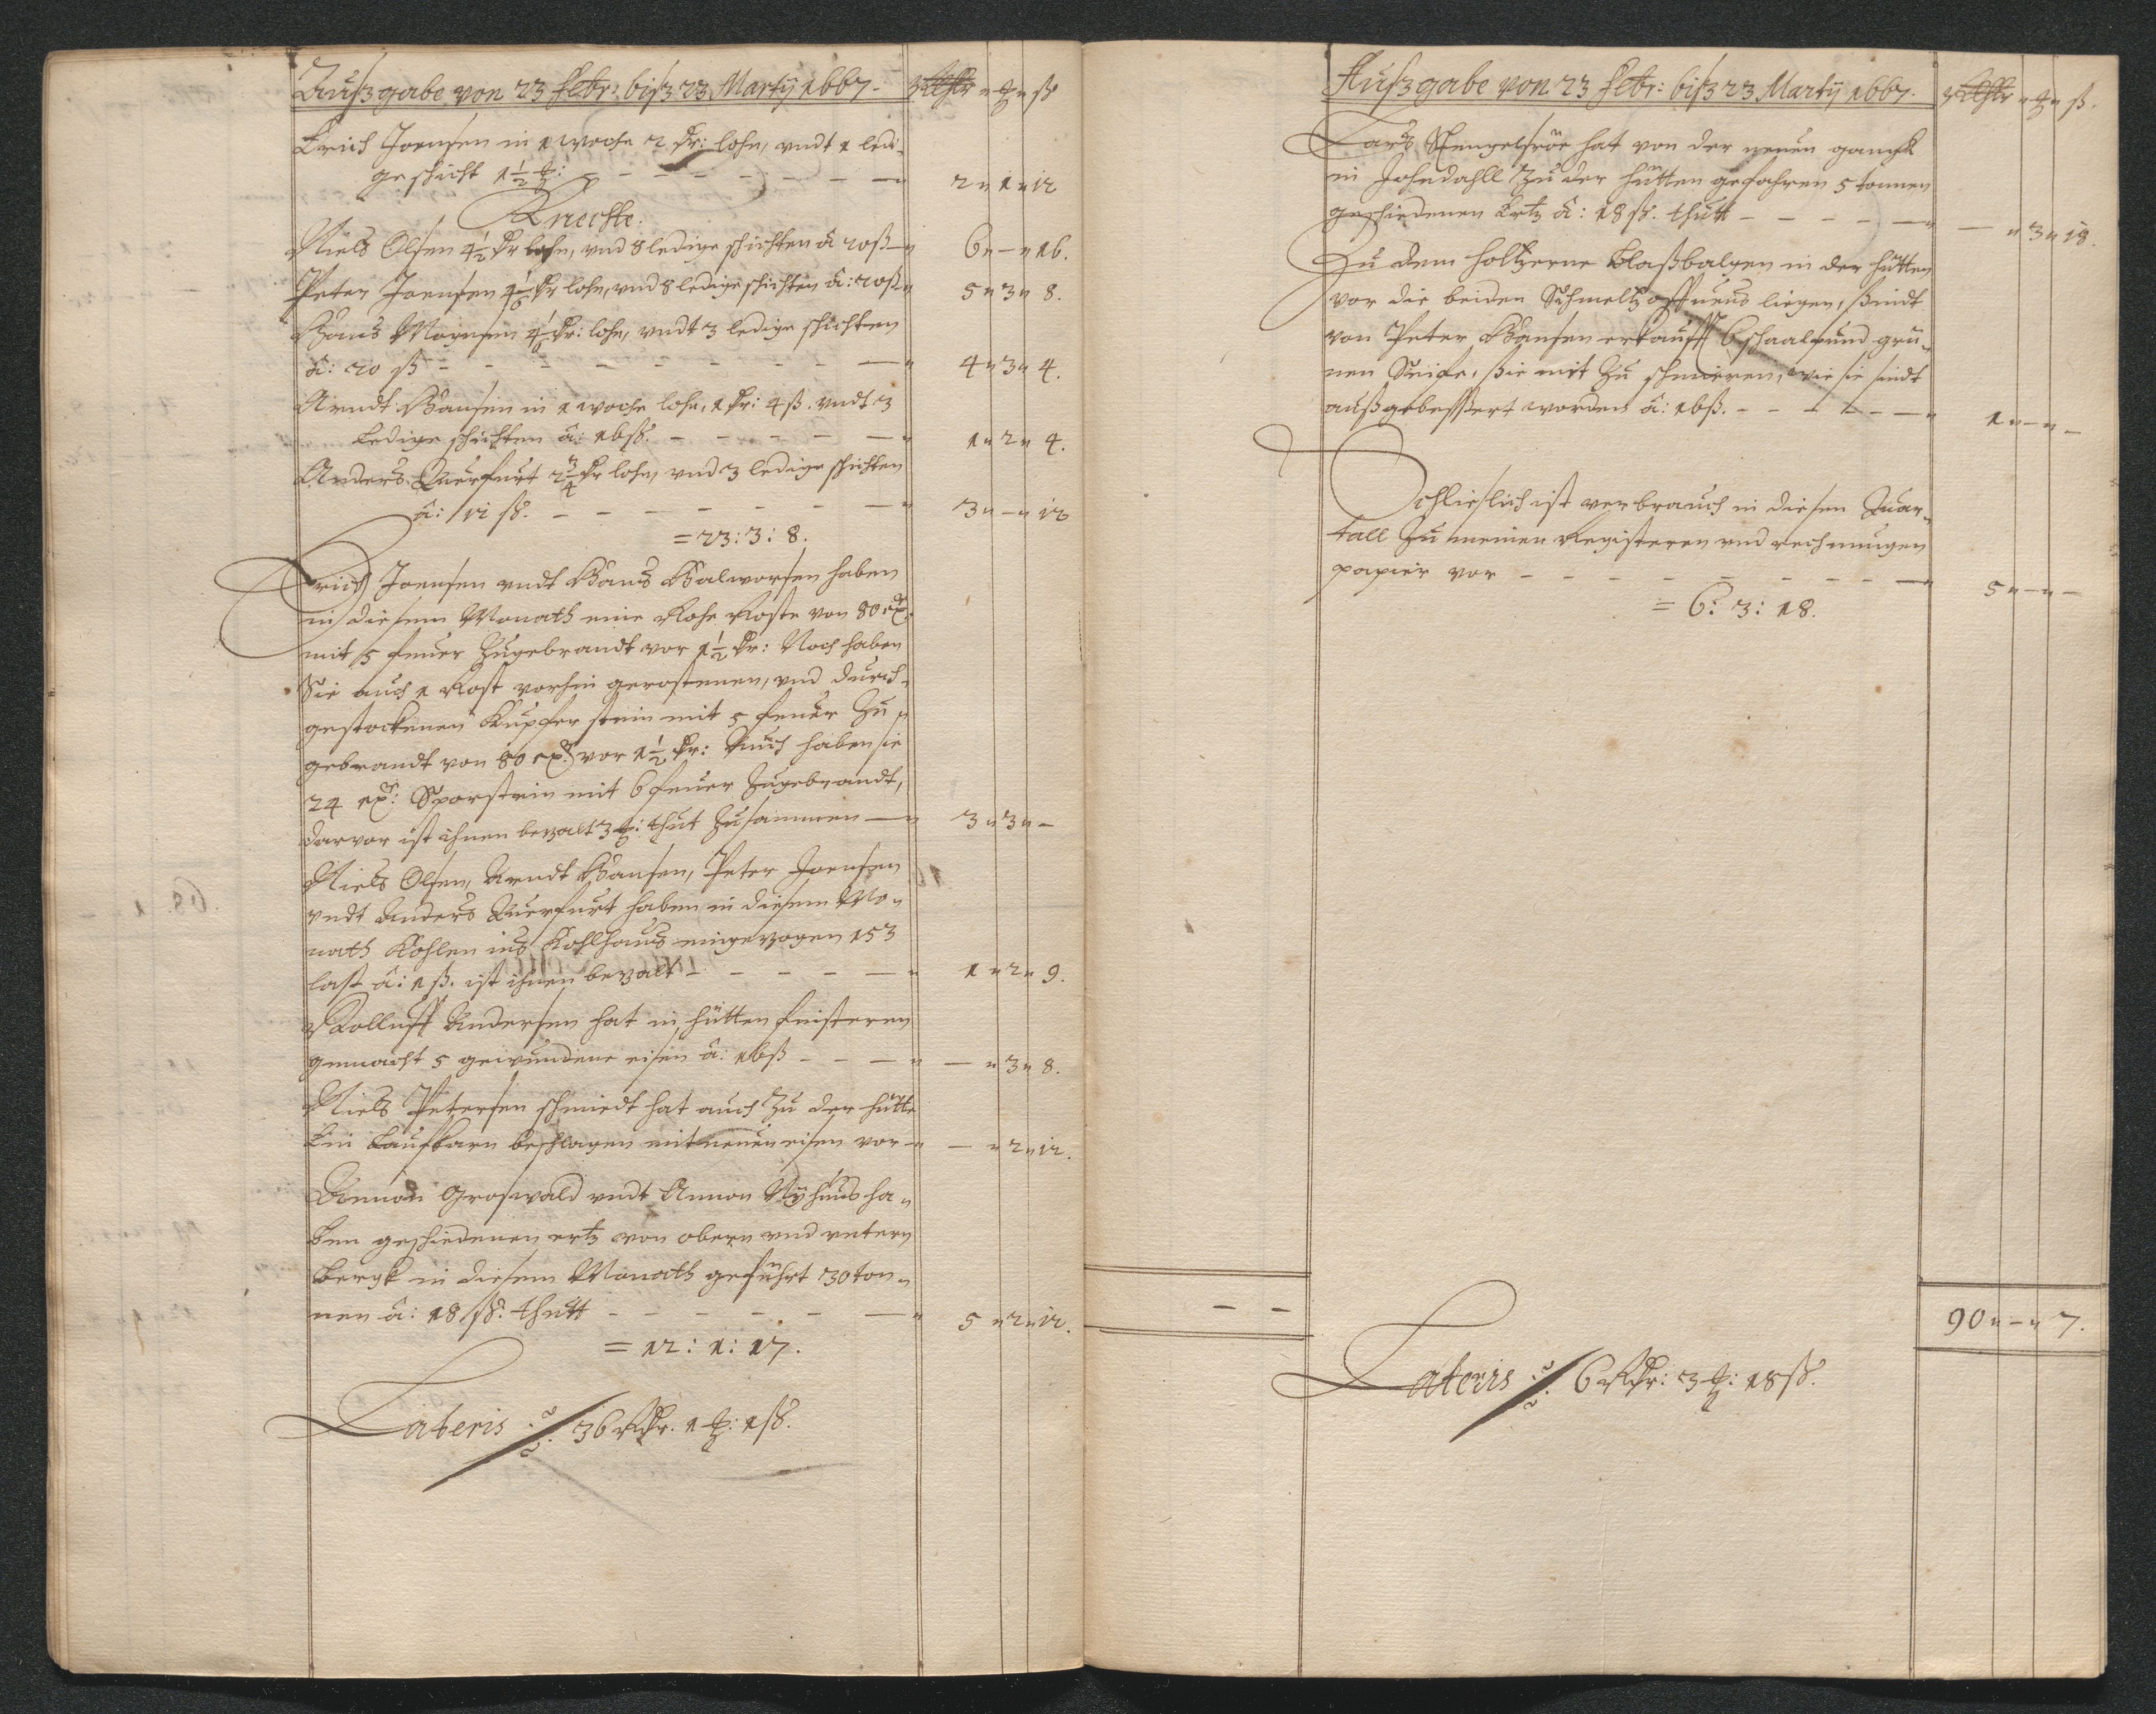 Außgabe von 23 Febr: biß 23 Martÿ 1667. Rthlr " ℔ " ß
Erich Joensen in 1 woche 2 Dr: lohn, vndt 1 ledi-
ge schicht 1½ ℔: — 2 " 1 " 12
Knechte.
Niels Olsen 4½ Dr lohn, vnd 8 ledige schichten â 20 ß — 6 " — " 16.
Peter Joensen 4 1/6 Dr lohn, vnd 8 ledige schichten â: 20 ß — 5 " 3 " 8.
Hans Mogensen 4 1/6 Dr: lohn, vndt 3 ledige schichten
â: 20 ß — 4 " 3 " 4.
Arndt Hansen in 1 woche lohn, 1 Dr: 4 ß. vndt 3
ledige schichten â: 16 ß. — 1 " 2 " 4.
Anders Querfurt 2¾ Dr lohn, vnd 3 ledige schichten
â: 12 ß. — 3 " — " 12
= 23: 3: 8.
Erich Joensen vndt Hans Halworsen haben
in diesem Monath eine Rohe Roste von 80
mit 5 feuer Zugebrandt vor 1½ Dr: Noch haben
Sie auch 1 Rost vorhin gerostenen, vnd durch-
gestochenen Kupfer stein mit 5 feuer Zu-
gebrandt von 80 vor 1½ Dr: Auch haben sie
24 Sporstein mit 6 feuer Zugebrandt,
darvor ist ihnen bezalt 3 ℔: thut Zusammen — 3 " 3 " —
Niels Olsen, Arndt Hansen, Peter Joensen
vndt Anders Querfurt haben in diesem Mo-
nath Kohlen ins Kohlhaus eingezogen 153
last â: 1 ß. ist ihnen bezalt — 1 " 2 " 9.
Rolluff Andersen hat in hütten feisteren
gemacht 5 gewundene eisen â: 16 ß — — " 3 " 8.
Niels Petersen schmiedt hat auch Zu der hütte
Ein Laufkarn beschlagen mit neuen eisen vor — — " 2 " 12.
Amon Groswald vndt Amon Nÿhuus ha-
ben geschiedenen ertz von obern vnd vntern
bergk in diesem Monath geführt 30 ton-
nen â: 18 ß. thutt — 5 " 2 " 12.
= 12: 1: 17.
Lateris ./. 36 Rdr. 1 ℔: 1 ß.
Außgabe von 23 Febr: biß 23 Martÿ 1667. Rthlr " ℔ " ß.
Lars Stengelsröe hat von der neuen gangk
in Johndahll Zu der hütten gefahren 5 tonnen
geschiedenen Ertz â: 18 ß. thutt — — " 3 " 18.
Zu dem holtzerne Blaßbalgen in der hütten
vor die beiden Schmeltzoffnens liegen, seindt
von Peter Hansen erkaufft 6 schaalpund gru-
nen Seife, sie mit Zu schmieren, wie sie seindt
außgebessert worden â: 16 ß. — 1 " — " —
Schlieslich ist verbrauch in diesen Quar-
tall Zu meinen Registeren vnd rechnungen
papier vor — 5 " — " —
= 6: 3: 18.
90 " — " 7.
Lateris ./. 6 Rdr: 3 ℔: 18 ß.